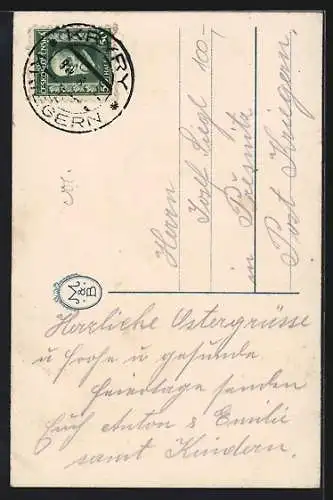 Herzliche Ostergrüsse
u frohe u gesunde
Feiertage senden
Euch Anton & Emilie
samt Kindern.
Herrn
Josef Siegl
in Pressnitz
Post Kriegern.
100-
M.
& B
GERN